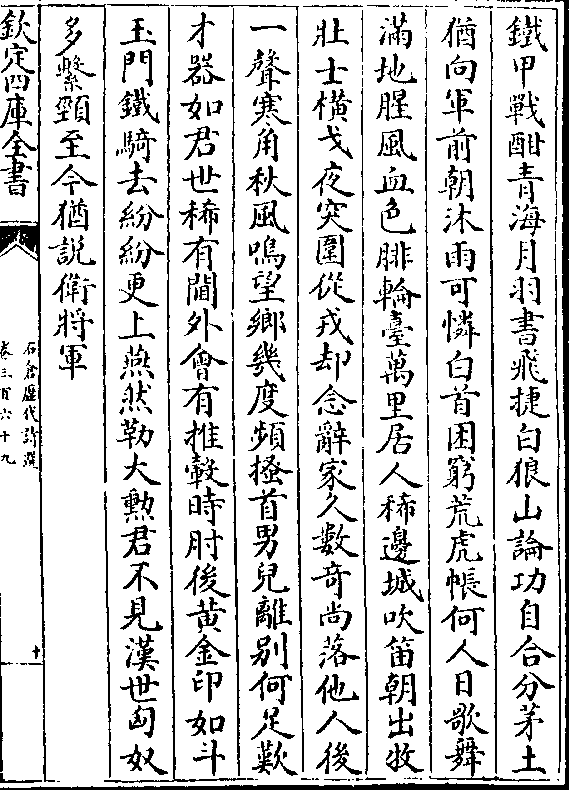 鐵甲戰酣青海月羽書飛捷白狼山論功自合分茅土
猶向軍前朝沐雨可憐白首困窮荒虎帳何人日歌舞
滿地腥風血色腓輪臺萬里居人稀邊城吹笛朝出牧
壯士橫戈夜突圍從戎却念辭家久數奇尚落他人後
一聲寒角秋風鳴望鄉幾度頻搔首男兒離别何足歎
才器如君世稀有閫外會有推轂時肘後黃金印如斗
玉門鐵騎去紛紛更上燕然勒大勲君不見漢世匈奴
多繫頸至今猶説衛將軍
欽定四庫全書
石倉歷代詩選
卷三百六十九
十